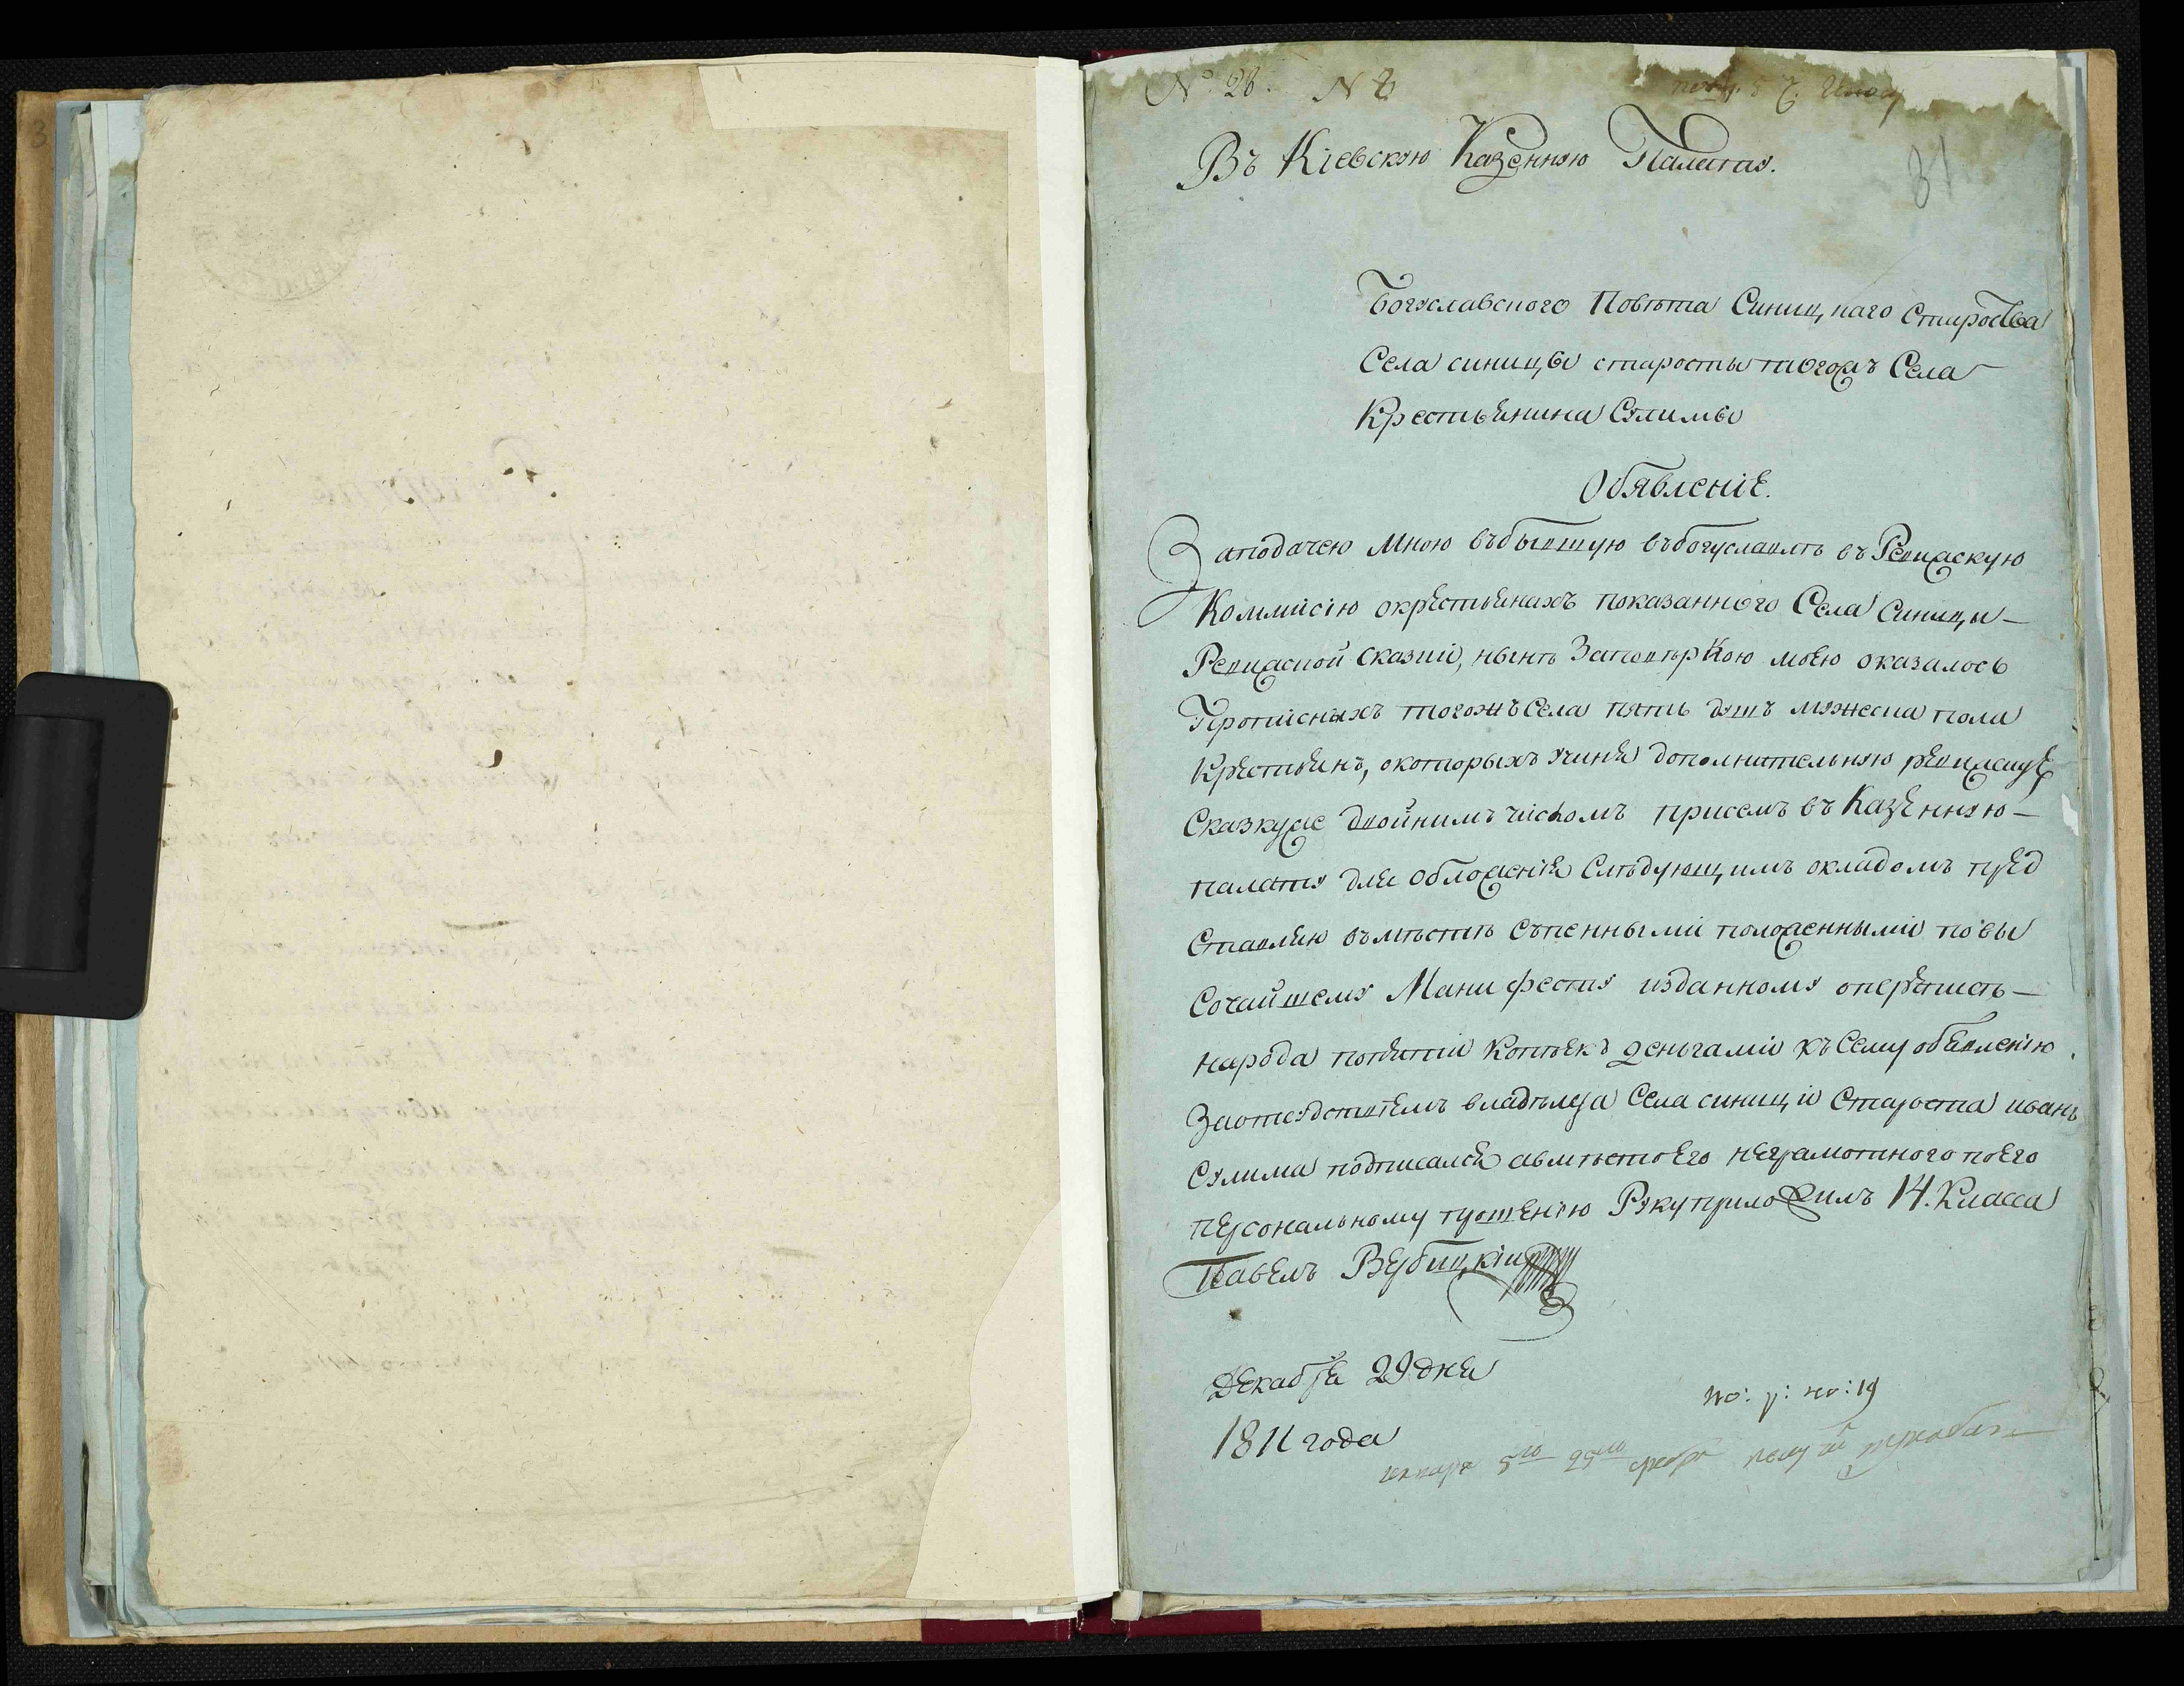 № 28. N 8
31
Въ Кіевскую Казенную Палату.
Богуславского Повѣта Синицкаго Староства
Села синицы старосты тогожъ Села
Крестьянина Сулимы
Обявленіе.
Заподачею мною въбывшую вбогуславлѣ въ Ревижскую
Коммисію окрестьянахъ показанного Села Синицы –
Ревижской сказки, нынѣ Заповѣркою моею оказалось
Прописныхъ тогожъ Села пять душъ мужеска пола
Крестьянъ, окоторыхъ учиня дополнительную
Сказкуже двойнимъ числомъ присемъ въ Казенную –
палату для обложенія Слѣдующимъ окладомъ пред
Ставляю вмѣстѣ съпенными положенными повы
Сочайшему Манифесту изданному оперѣписѣ –
народа попяти Копѣекъ деньгами къ Сему обявленію
Заотсудствіемъ владѣлца Села синици Староста иванъ
Сулима подписался авмѣсто Его неграмотного поЕго
персональному прошенію Руку приложилъ 14. Класса
Павелъ Вербицкій
Декабря 29 дня
1811 года
января 5го